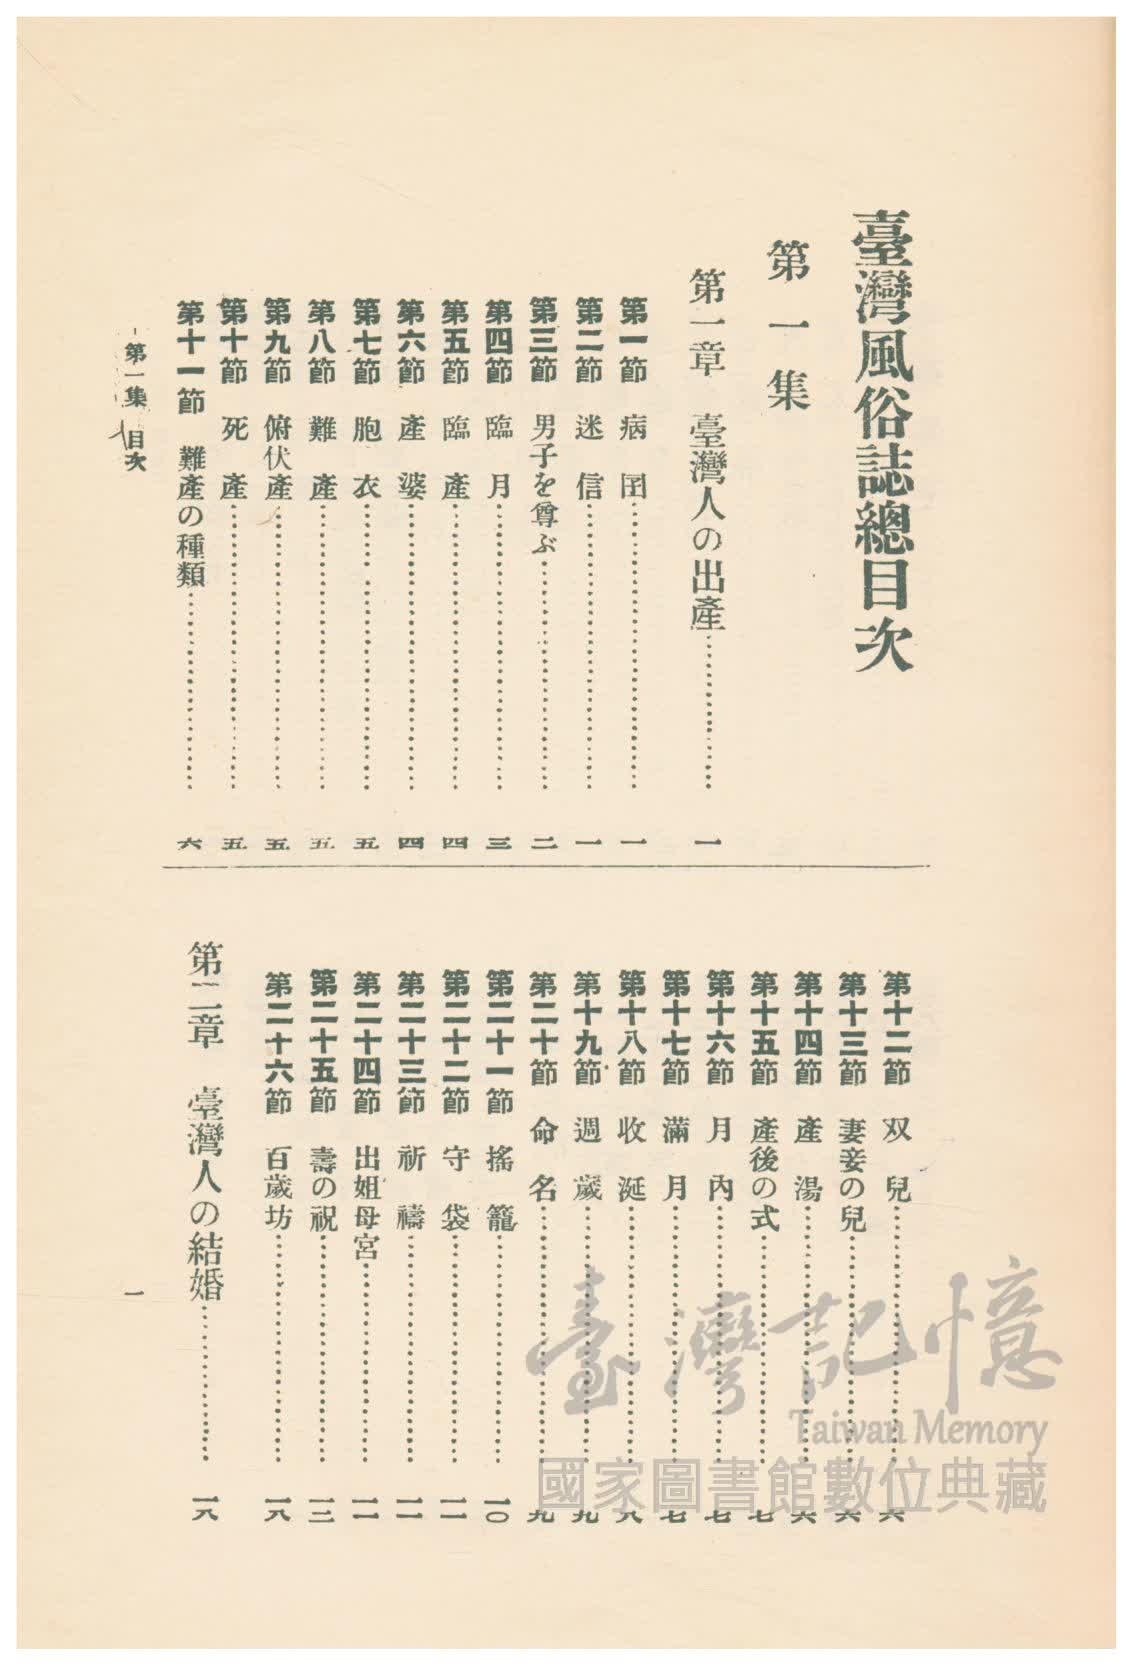 臺灣風俗誌總目次
第一集
第一章　臺灣人の出產…………一
第一節　病囝…………一
第二節　迷信…………一
第三節　男子を尊ぶ…………二
第四節　臨月…………三
第五節　臨產…………四
第六節　產婆…………四
第七節　胞衣…………五
第八節　難產…………五
第九節　俯伏產…………五
第十節　死產…………五
第十一節　難產の種類…………六
第十二節　双兒…………六
第十三節　妻妾の兒…………六
第十四節　產湯…………六
第十五節　產後の式…………七
第十六節　月內…………七
第十七節　滿月…………七
第十八節　收涎…………八
第十九節　週歲…………九
第二十節　命名…………九
第二十一節　搖籠…………一〇
第二十二節　守袋…………一一
第二十三節　祈禱…………一一
第二十四節　出姐母宮…………一一
第二十五節　壽の祝…………一三
第二十六節　百歲坊…………一八
第二章　臺灣人の結婚…………一八
第一集　目次
一
臺灣記憶
Taiwan Memory
國家圖書館數位典藏